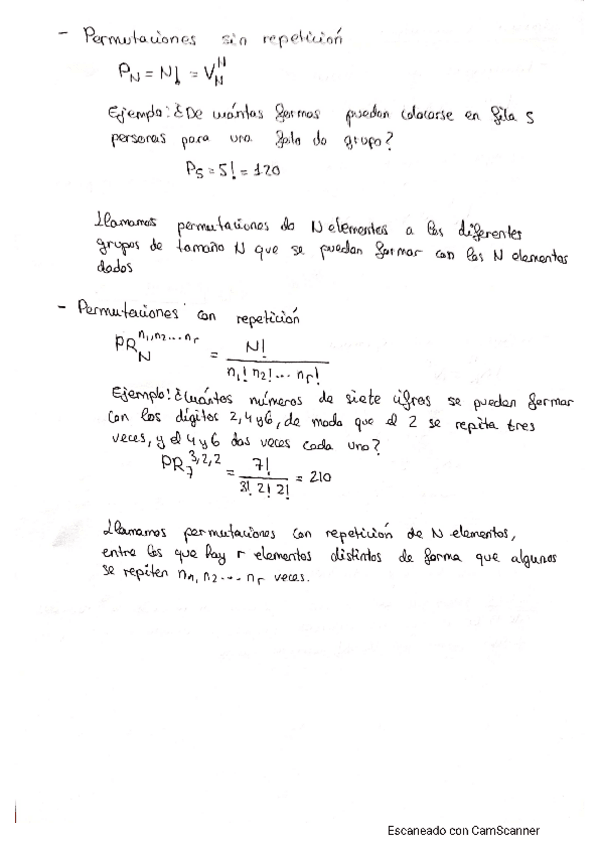 - Permutaciones sin repetición
P_N = N! = V_N^N
Ejemplo: ¿De cuántas formas pueden colocarse en fila 5
personas para una foto de grupo?
P_5 = 5! = 120
Llamamos permutaciones de N elementos a los diferentes
grupos de tamaño N que se puedan formar con los N elementos
dados
- Permutaciones con repetición
PR_N^{n_1, n_2 ... n_r} = N! / (n_1! n_2! ... n_r!)
Ejemplo: ¿Cuántos números de siete cifras se pueden formar
con los dígitos 2, 4 y 6, de modo que el 2 se repita tres
veces, y el 4 y 6 dos veces cada uno?
PR_7^{3,2,2} = 7! / (3! 2! 2!) = 210
Llamamos permutaciones con repetición de N elementos,
entre los que hay r elementos distintos de forma que algunos
se repiten n_1, n_2 ... n_r veces.
Escaneado con CamScanner